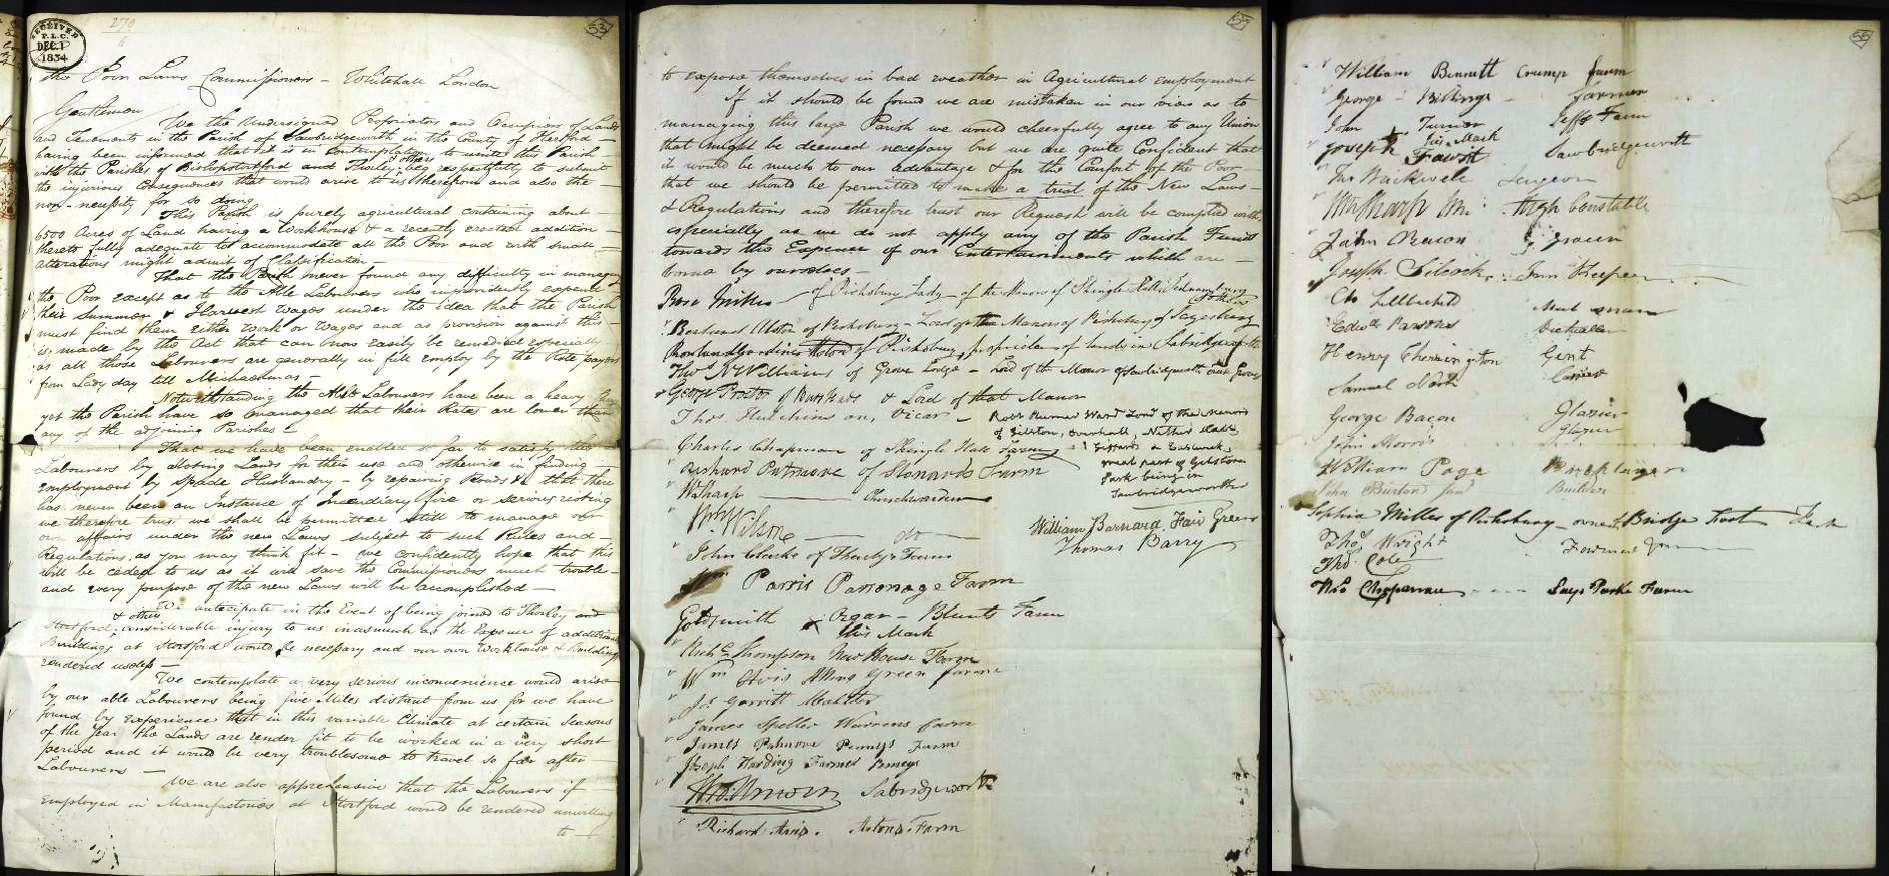 270
53
RECEIVED
P.L.C.
DEC. 1
1834
The Poor Laws Commissioners – Whitehall London
Gentlemen
We the Undersigned Proprietors and Occupiers of Lands
and Tenements in the Parish of Sawbridgeworth in the County of Hertford –
having been informed that it is in Contemplation to unite this Parish
with the Parishes of Bishopstortford and Thorley & others beg respectfully to submit
the injurious Consequences that would arise to us therefrom and also the –
non-necessity for so doing
This Parish is purely agricultural containing about –
6500 Acres of Land having a Workhouse & a recently erected addition –
thereto fully adequate to accommodate all the Poor and with small –
alterations might admit of Classification –
That this Parish never found any difficulty in managing
the Poor except as to the Able Labourers who improvidently expend
their Summer & Harvest wages under the idea that the Parish
must find them either work or wages and as provision against this –
is made by the Act that can now easily be remedied especially
as all those Labourers are generally in full employ by the Rate payers
from Lady day till Michaelmas –
Notwithstanding the Able Labourers have been a heavy
yet the Parish have so managed that their Rates are lower than
any of the adjoining Parishes –
That we have been enabled so far to satisfy the
Labourers by alloting Lands for their use and otherwise in finding
employment by Spade Husbandry – by repairing Roads &c that there
has never been an Instance of Incendiary fire or serious rioting
we therefore trust we shall be permitted still to manage our
own affairs under the new Laws subject to such Rules and –
Regulations, as you may think fit – we confidently hope that this
will be ceded to us as it will save the Commissioners much trouble –
and every purpose of the new Laws will be accomplished –
We antecipate in the Event of being joined to Thorley and
Stortford & others considerable injury to us inasmuch as the Expence of additional
Buildings at Stortford would be necessary and our own Workhouse & Buildings
rendered useless –
We contemplate a very serious inconvenience would arise
by our able Labourers being five Miles distant from us for we have
found by experience that in this variable Climate at certain Seasons
of the year the Lands are render fit to be worked in a very short
period and it would be very troublesome to travel so far after –
Labourers –
We are also apprehensive that the Labourers if –
employed in Manufactories at Stortford would be rendered unwilling
to –
to expose themselves in bad weather in Agricultural employment
If it should be found we are mistaken in our views as to
managing this large Parish we would cheerfully agree to any Union
that might be deemed necessary but we are quite Confident that
it would be much to our advantage & for the Comfort of the Poor –
that we should be permitted to make a trial of the New Laws –
& Regulations and therefore trust our Request will be complied with
especially as we do not apply any of the Parish Funds
towards the Expence of our Entertainments which are –
borne by ourselves –
Rose Milles – of Pishobury Lady – of the Manors of Shingle Hall
of Pishobury – Lord of the Manors of Pishobury
of Pishobury, proprietor of lands in
Thos N Williams of Grove Lodge – Lord of the Manor of Sawbridgeworth
George Proctor & Lord of that Manor
Thos Hutchinson, Vicar –
Robt Plumer Ward Lord of the Manors
of Gilston, Overhall, Netherhall
& Giffords in Eastwick
great part of Gilston
Park being in
Sawbridgeworth
Charles Chapman of Shingle Hall Farm
Richard Patmore of Stonards Farm
W Sharp – Churchwarden
Wm Wilson – do
John Clarke of Farm
William Barnard Fair Green
Thomas Barry
Wm Parris Parsonage Farm
Goldsmith X Organ – Blunts Farm
His Mark
Richd Thompson New House Farm
Wm Elvis Allens Green farm
Js Garritt Maltster
James Speller Warrens farm
James Patmore Farm
Joseph Harding Farmer
Sabridgworth
Richard Avis. Astons Farm
William Bennett Crump Farm
George Billings – Farmer
John Turner Farm
Joseph X Fawsit his Mark Sawbridgeworth
Thos Surgeon
Wm Sharp High Constable
John Bacon Grocer
Joseph Silcock Inn Keeper
Meal man
Edwd Parsons
Henry Cherrington Gent
Samuel
George Bacon Glazier
John Morris Glazier
William Page Bricklayer
John Burton Builder
Sophia Milles of Pishobury – owner of Bridge foot
Thos Wright
Thos Cole
Chapman – – – Says Parke Farm